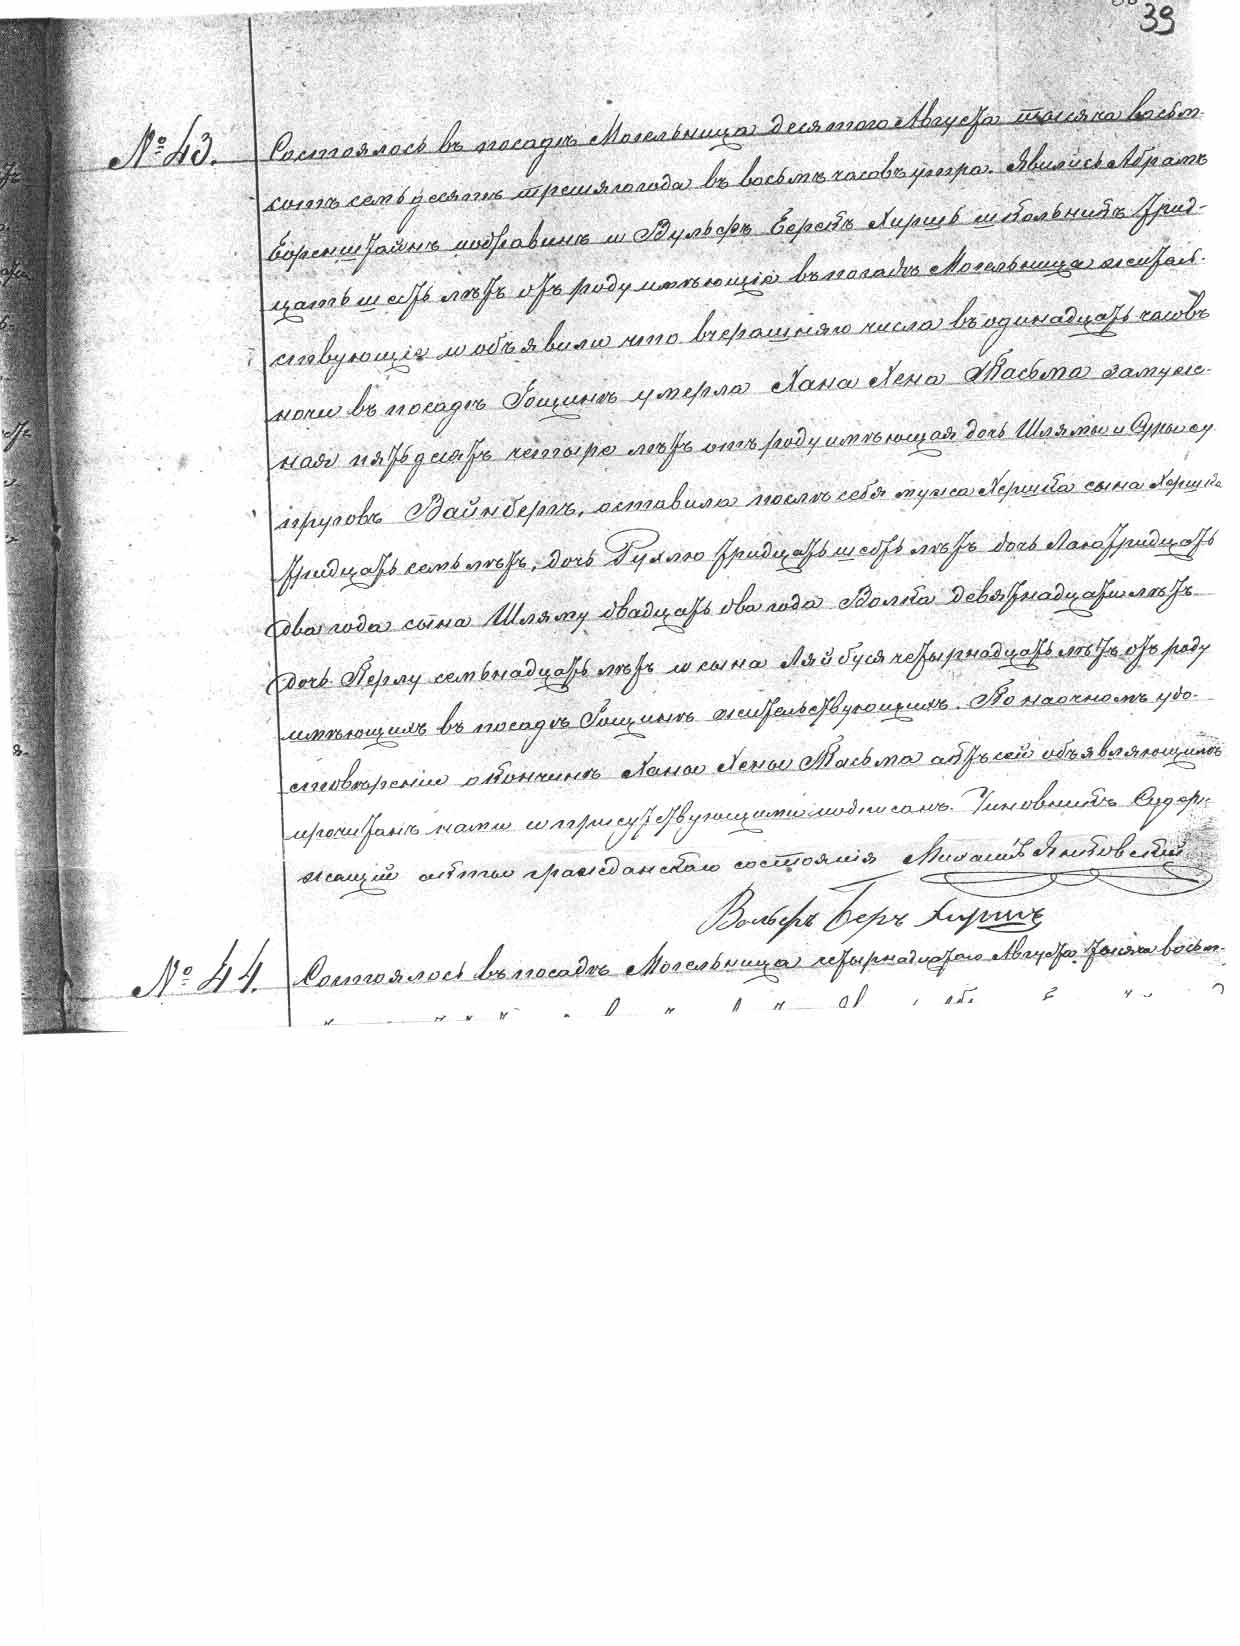 39
№ 43. Состоялось въ посадѣ Могельница десятого Августа тысяча восьм-
сотъ семьдесятъ третяго года въ восьмъ часовъ утра. Явились Абрамъ
и Вульфъ Беркъ Хиршъ школьникъ трид-
цать шесть лѣтъ отъ роду имѣющіе въ посадѣ Могельница жительс-
ствующіе и объявили что вчерашняго числа въ одинадцать часовъ
ночи въ посадѣ Гощинѣ умерла Хана Хена Пасьма замуж-
ная пятьдесятъ четыре лѣтъ отъ роду имѣющая дочь Шлямы и су-
пруговъ Вайнбергъ, оставила послѣ себя мужа Хершка сына Хершка
тридцать семь лѣтъ, дочь Рухлю тридцать шесть лѣтъ дочь Лаю тридцать
два года сына Шляму двадцать два года Волка девятнадцати лѣтъ
дочь Перлу семьнадцать лѣтъ и сына Ляйбуся четырнадцать лѣтъ отъ роду
имѣющихъ въ посадѣ Гощинѣ жительствующихъ. По наочномъ удо-
стовѣреніи о кончинѣ Ханы Хены Пасьма актъ сей объявляющимъ
прочитанъ нами и присутствующими подписанъ. Чиновникъ Содер-
жащій акты гражданскаго состоянія Михаилъ Янковскій
Вольфъ Беръ Хиршъ
№ 44. Состоялось въ посадѣ Могельница четырнадцатаго Августа тысяча восьм-